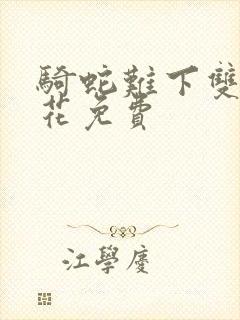 騎蛇難下雙
花免費
江學慶